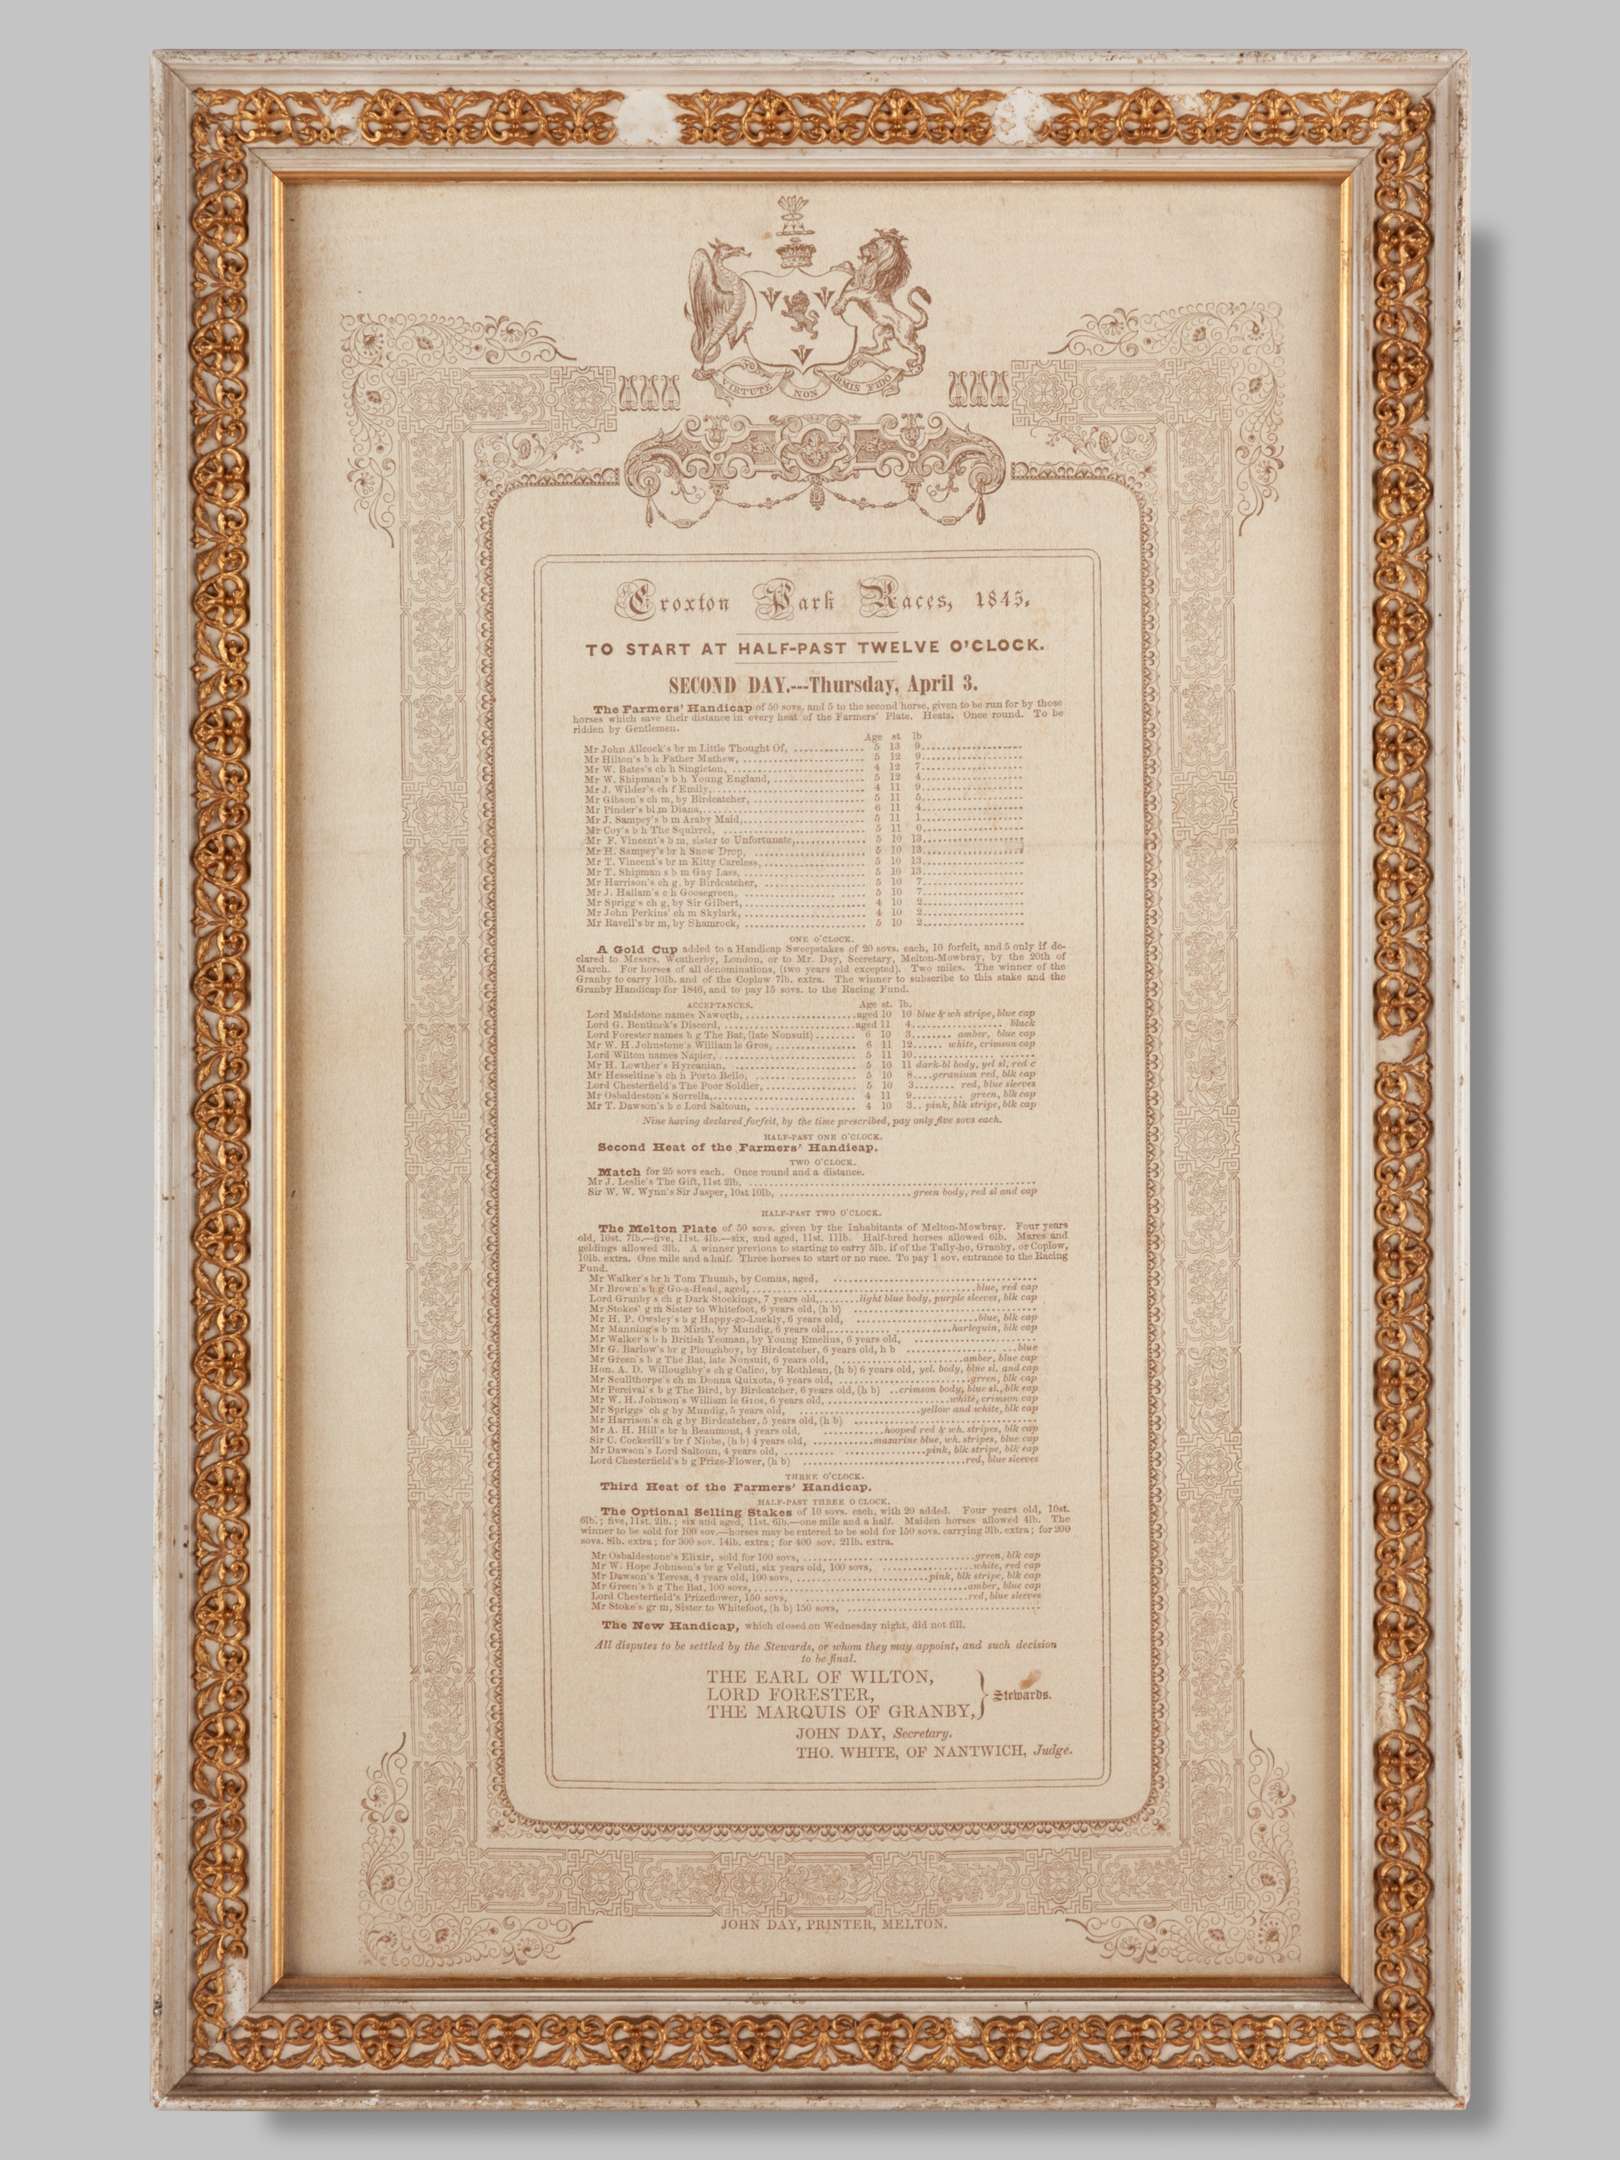 VIRTUTE NON ARMIS FIDO
Croxton Park Races, 1845.
TO START AT HALF-PAST TWELVE O'CLOCK.
SECOND DAY.---Thursday, April 3.
The Farmers' Handicap of 50 sovs. and 5 to the second horse, given to be run for by those
horses which save their distance in every heat of the Farmers' Plate. Heats. Once round. To be
ridden by Gentlemen.
Age st lb
Mr John Allcock's br m Little Thought Of, 5 13 9
Mr Hilton's b h Father Mathew, 5 12 9
Mr W. Bates's ch h Singleton, 4 12 7
Mr W. Shipman's b h Young England, 5 12 4
Mr J. Wilder's ch f Emily, 4 11 9
Mr Gibson's ch m, by Birdcatcher, 5 11 5
Mr Pinder's bl m Diana, 6 11 4
Mr J. Sampey's b m Araby Maid, 5 11 1
Mr Coy's b h The Squirrel, 5 11 0
Mr F. Vincent's b m, sister to Unfortunate, 5 10 13
Mr H. Sampey's br h Snow Drop, 5 10 13
Mr T. Vincent's br m Kitty Careless, 5 10 13
Mr T. Shipman s b m Gay Lass, 5 10 13
Mr Harrison's ch g, by Birdcatcher, 5 10 7
Mr J. Hallam's c h Goosegreen, 5 10 7
Mr Sprigg's ch g, by Sir Gilbert, 4 10 2
Mr John Perkins' ch m Skylark, 4 10 2
Mr Ravell's br m, by Shamrock, 5 10 2
ONE O'CLOCK.
A Gold Cup added to a Handicap Sweepstakes of 20 sovs. each, 10 forfeit, and 5 only if de-
clared to Messrs. Weatherby, London, or to Mr. Day, Secretary, Melton-Mowbray, by the 20th of
March. For horses of all denominations, (two years old excepted). Two miles. The winner of the
Granby to carry 10lb. and of the Coplow 7lb. extra. The winner to subscribe to this stake and the
Granby Handicap for 1846, and to pay 15 sovs. to the Racing Fund.
ACCEPTANCES. Age st. lb.
Lord Maidstone names Naworth, aged 10 10 blue & wh stripe, blue cap
Lord G. Bentinck's Discord, aged 11 4 black
Lord Forester names h g The Bat, (late Nonsuit) 6 10 3 amber, blue cap
Mr W. H. Johnstone's William le Gros, 6 11 12 white, crimson cap
Lord Wilton names Napier, 5 11 10
Mr H. Lowther's Hyrcanian, 5 10 11 dark-bl body, yel sl, red c
Mr Hesseltine's ch h Porto Bello, 5 10 8 geranium red, blk cap
Lord Chesterfield's The Poor Soldier, 5 10 3 red, blue sleeves
Mr Osbaldeston's Sorrella, 4 11 9 green, blk cap
Mr T. Dawson's b c Lord Saltoun, 4 10 3 pink, blk stripe, blk cap
Nine having declared forfeit, by the time prescribed, pay only five sovs each.
HALF-PAST ONE O'CLOCK.
Second Heat of the Farmers' Handicap.
TWO O'CLOCK.
Match for 25 sovs each. Once round and a distance.
Mr J. Leslie's The Gift, 11st 2lb,
Sir W. W. Wynn's Sir Jasper, 10st 10lb, green body, red sl and cap
HALF-PAST TWO O'CLOCK.
The Melton Plate of 50 sovs. given by the Inhabitants of Melton-Mowbray. Four years
old, 10st. 7lb.—five, 11st. 4lb.—six, and aged, 11st. 11lb. Half-bred horses allowed 6lb. Mares and
geldings allowed 3lb. A winner previous to starting to carry 5lb. if of the Tally-ho, Granby, or Coplow,
10lb. extra. One mile and a half. Three horses to start or no race. To pay 1 sov. entrance to the Racing
Fund.
Mr Walker's br h Tom Thumb, by Comus, aged,
Mr Brown's b g Go-a-Head, aged, blue, red cap
Lord Granby's ch g Dark Stockings, 7 years old, light blue body, purple sleeves, blk cap
Mr Stokes' g m Sister to Whitefoot, 6 years old, (h b)
Mr H. P. Owsley's b g Happy-go-Luckly, 6 years old, blue, blk cap
Mr Manning's b m Mirth, by Mundig, 6 years old, harlequin, blk cap
Mr Walker's b h British Yeoman, by Young Emelius, 6 years old,
Mr G. Barlow's br g Ploughboy, by Birdcatcher, 6 years old, h b blue
Mr Green's b g The Bat, late Nonsuit, 6 years old, amber, blue cap
Hon. A. D. Willoughby's ch g Calico, by Rothlean, (h b) 6 years old, yel. body, blue sl. and cap
Mr Scullthorpe's ch m Donna Quixota, 6 years old, green, blk cap
Mr Percival's b g The Bird, by Birdcatcher, 6 years old, (h b) crimson body, blue sl., blk cap
Mr W. H. Johnson's William le Gros, 6 years old, white, crimson cap
Mr Spriggs' ch g by Mundig, 5 years old, yellow and white, blk cap
Mr Harrison's ch g by Birdcatcher, 5 years old, (h b)
Mr A. H. Hill's br h Beaumont, 4 years old, hooped red & wh. stripes, blk cap
Sir C. Cockerill's br f Niobe, (h b) 4 years old, mazarine blue, wh. stripes, blue cap
Mr Dawson's Lord Saltoun, 4 years old, pink, blk stripe, blk cap
Lord Chesterfield's b g Prize-Flower, (h b) red, blue sleeves
THREE O'CLOCK.
Third Heat of the Farmers' Handicap.
HALF-PAST THREE O CLOCK.
The Optional Selling Stakes of 10 sovs. each, with 20 added. Four years old, 10st.
6lb.; five, 11st. 2lb.; six and aged, 11st. 6lb.—one mile and a half. Maiden horses allowed 4lb. The
winner to be sold for 100 sov.—horses may be entered to be sold for 150 sovs. carrying 3lb. extra; for 200
sovs. 8lb. extra; for 300 sov. 14lb. extra; for 400 sov. 21lb. extra.
Mr Osbaldestone's Elixir, sold for 100 sovs, green, blk cap
Mr W. Hope Johnson's br g Veluti, six years old, 100 sovs, white, red cap
Mr Dawson's Teresa, 4 years old, 100 sovs, pink, blk stripe, blk cap
Mr Green's b g The Bat, 100 sovs, amber, blue cap
Lord Chesterfield's Prizeflower, 150 sovs, red, blue sleeves
Mr Stoke's gr m, Sister to Whitefoot, (h b) 150 sovs,
The New Handicap, which closed on Wednesday night, did not fill.
All disputes to be settled by the Stewards, or whom they may appoint, and such decision
to be final.
THE EARL OF WILTON,
LORD FORESTER,
THE MARQUIS OF GRANBY, } Stewards.
JOHN DAY, Secretary.
THO. WHITE, OF NANTWICH, Judge.
JOHN DAY, PRINTER, MELTON.